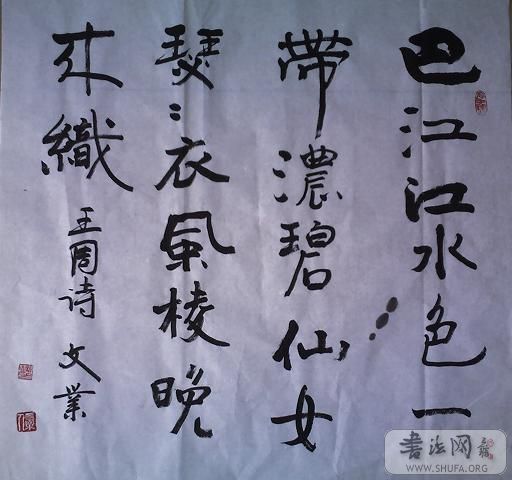 巴江江水色一
帶濃碧仙女
瑟々衣風梭晚
来織 王周诗 文業
書法网
WWW.SHUFA.ORG